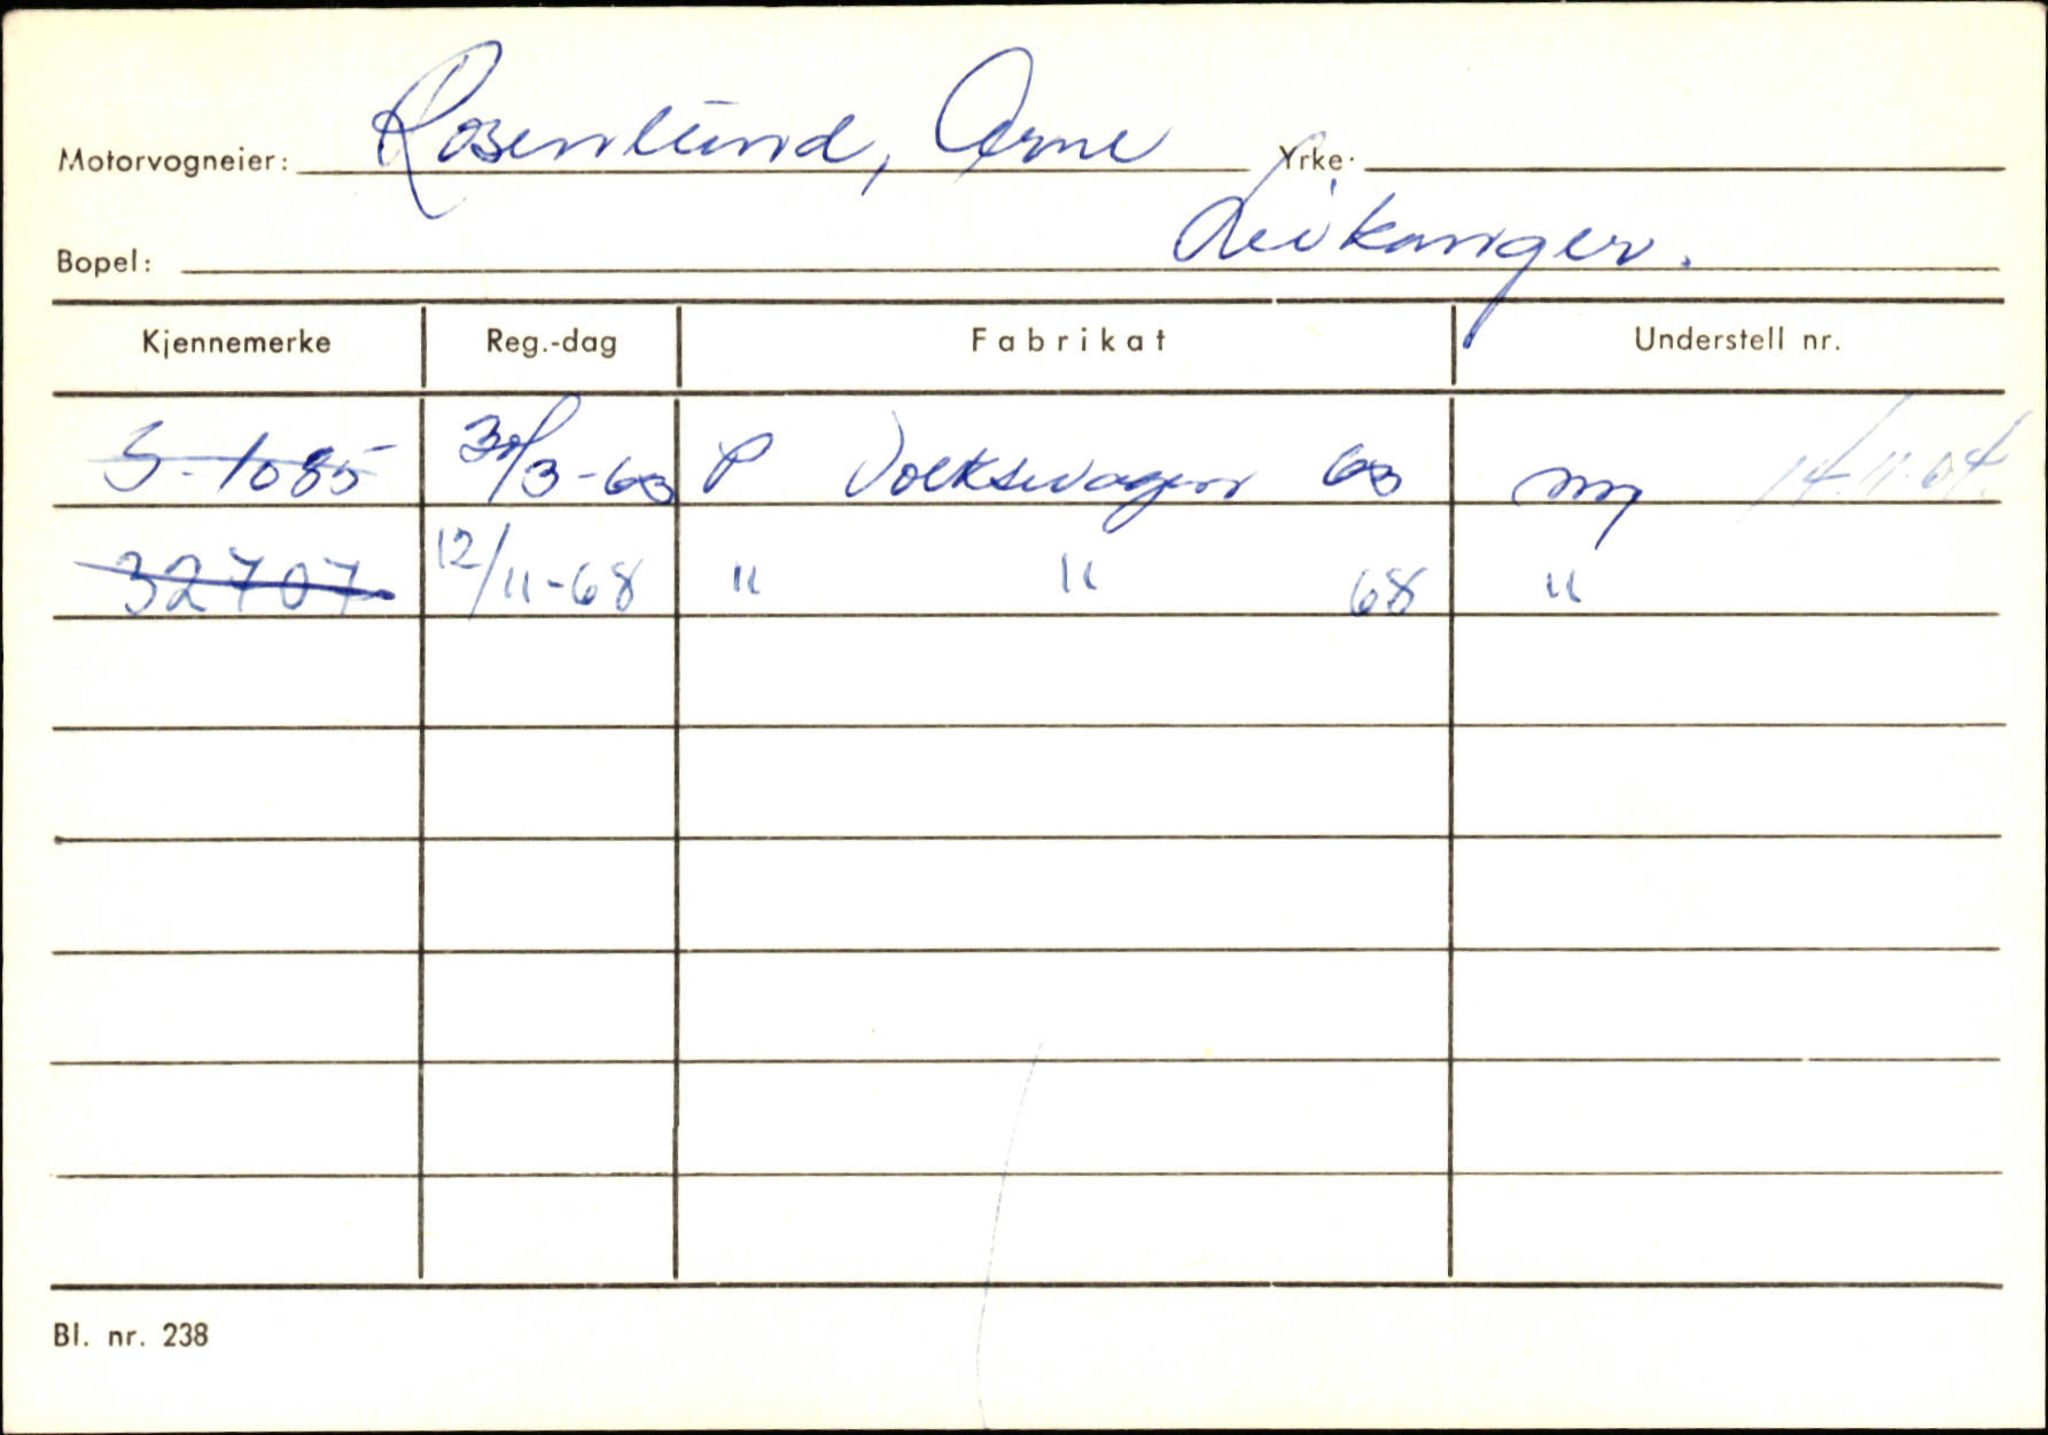 Motorvogneier: Rosenlund, Arne Yrke:
Bopel: Leikanger.
Kjennemerke Reg.-dag Fabrikat Understell nr.
S-1085 30/3-63 P Volkswagen 63 ny
32707 12/11-68 " " 68 "
Bl. nr. 238